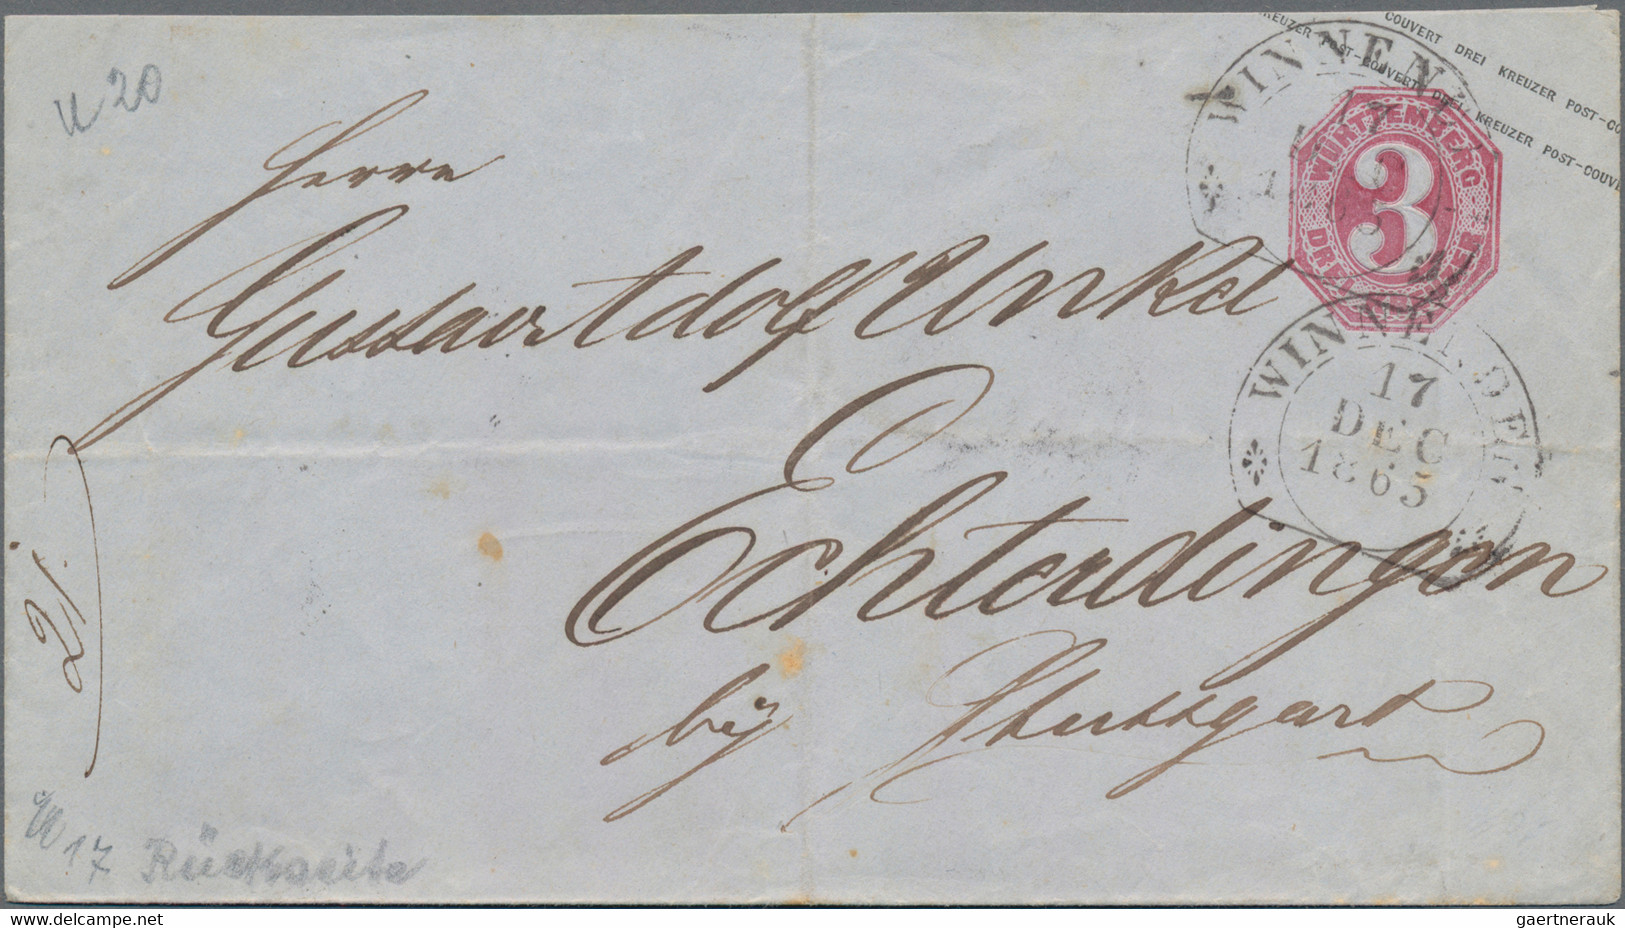 U 20
COUVERT DREI KREUZER POST-CO
KREUZER POST-COUVERT DREI KREUZER POST-COUVE
WINNEN
WÜRTTEMBERG
3
DREI KREUZER
WINNENDEN
17
DEC
1865
Herrn
Gustav Adolf Unkel
Echterdingen
bij Stuttgart
21.
U 17 Rückseite
www.delcampe.net
gaertnerauk